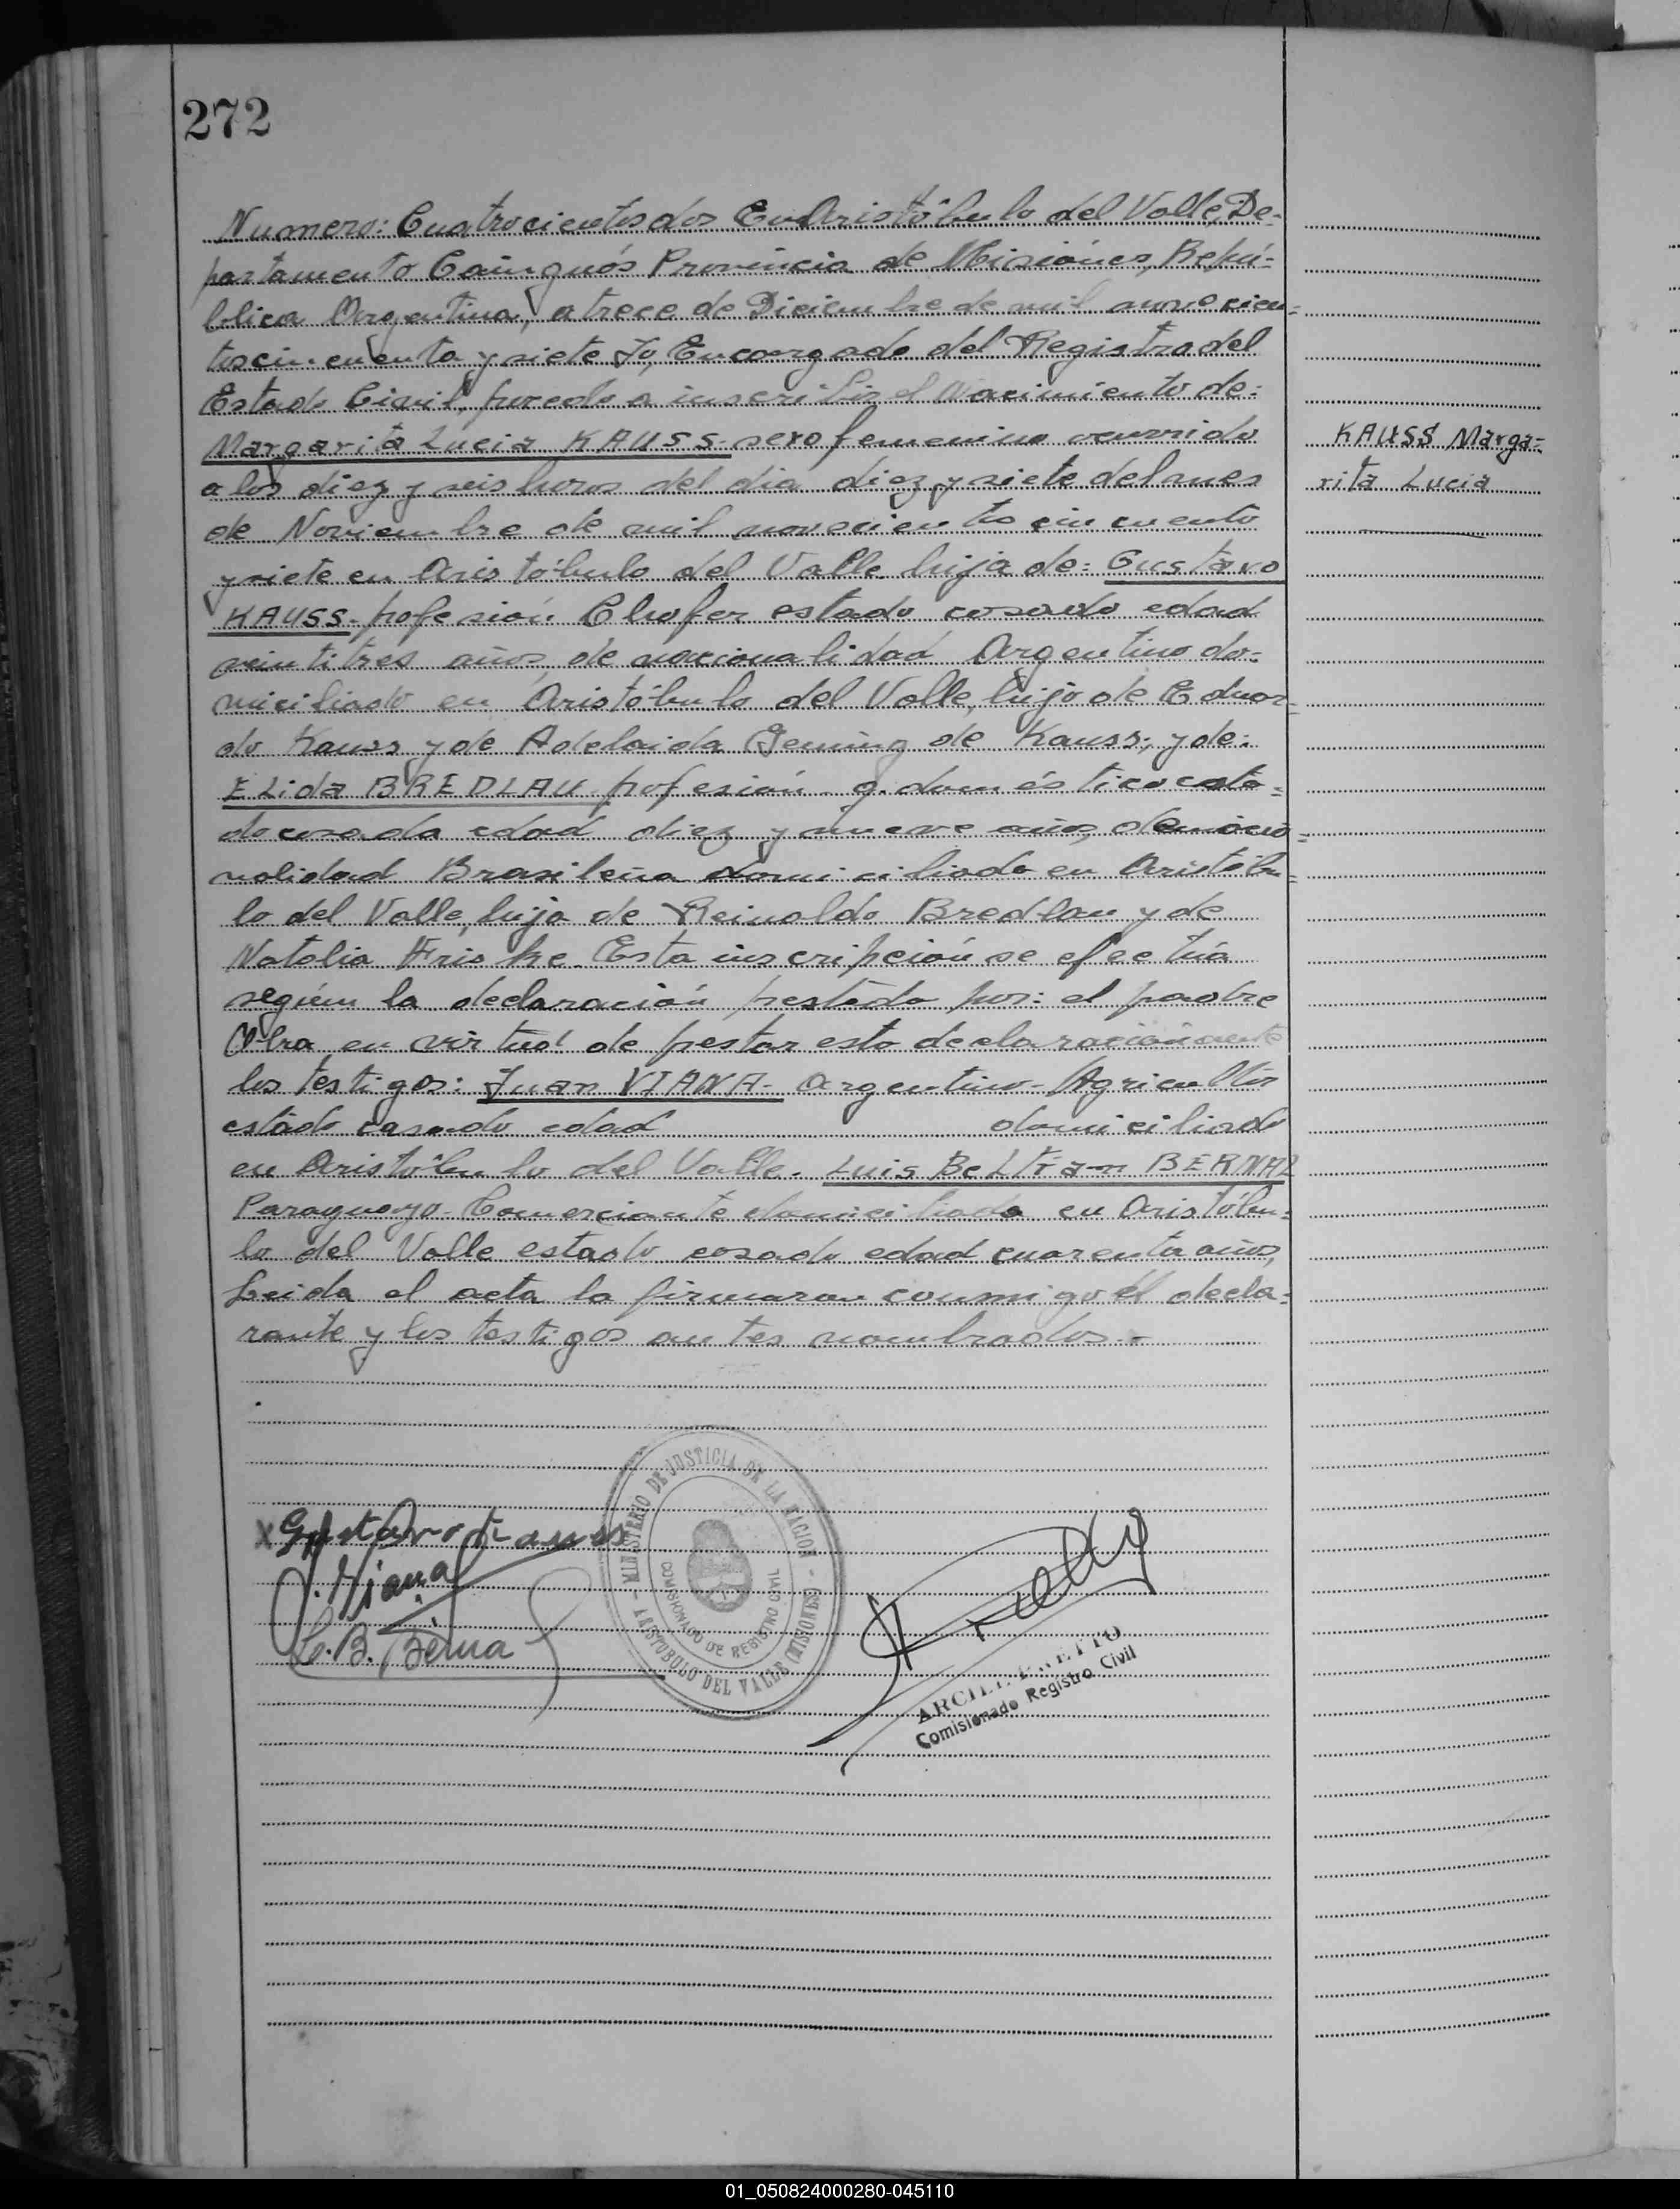 272
Numero: Cuatrocientos dos En Aristóbulo del Valle, De-
partamento Cainguás Provincia de Misiónes, Repú-
blica Argentina, a trece de Diciembre de mil novecien-
tos cincuenta y siete Yo, Encargado del Registro del
Estado Civil, procedo a inscribir el Nacimiento de:
Margarita Lucia KAUSS- sexo femenino ocurrido
a los diez y seis horas del dia diez y siete del mes
de Noviembre de mil novecientos cincuenta
y siete en Aristóbulo del Valle hija de: Gustavo
KAUSS- profesión Chofer estado casado edad
veintitrés años, de nacionalidad Argentino do-
miciliado en Aristóbulo del Valle, hijo de Eduar-
do Kauss y de Adelaida de Kauss; y de:
ELida BREDLAU profesión q. doméstico esta-
do casada edad diez y nueve años, de nacio-
nalidad Brasileña domiciliada en Aristóbu-
lo del Valle, hija de Reinaldo Bredlau y de
Natalia Friske. Esta inscripción se efectúa
según la declaración prestada por: el padre
Obra en virtud de prestar esta declaración ante
los testigos: Juan VIANA- Argentino- Agricultor
estado casado edad domiciliado
en Aristóbulo del Valle. Luis BeLtran BERNAL
Paraguayo- Comerciante domiciliado en Aristóbu-
lo del Valle estado casado edad cuarenta años,
Leida el acta la firmaron conmigo él decla-
rante y los testigos antes nombrados.-
KAUSS Marga-
rita Lucia
x Gustavo Kauss
J. Viana
L. B. Berna
MINISTERIO DE JUSTICIA DE LA NACION - ARISTOBULO DEL VALLE (MISIONES)
COMISIONADO DE REGISTRO CIVIL
Comisionado Registro Civil
01_050824000280-045110